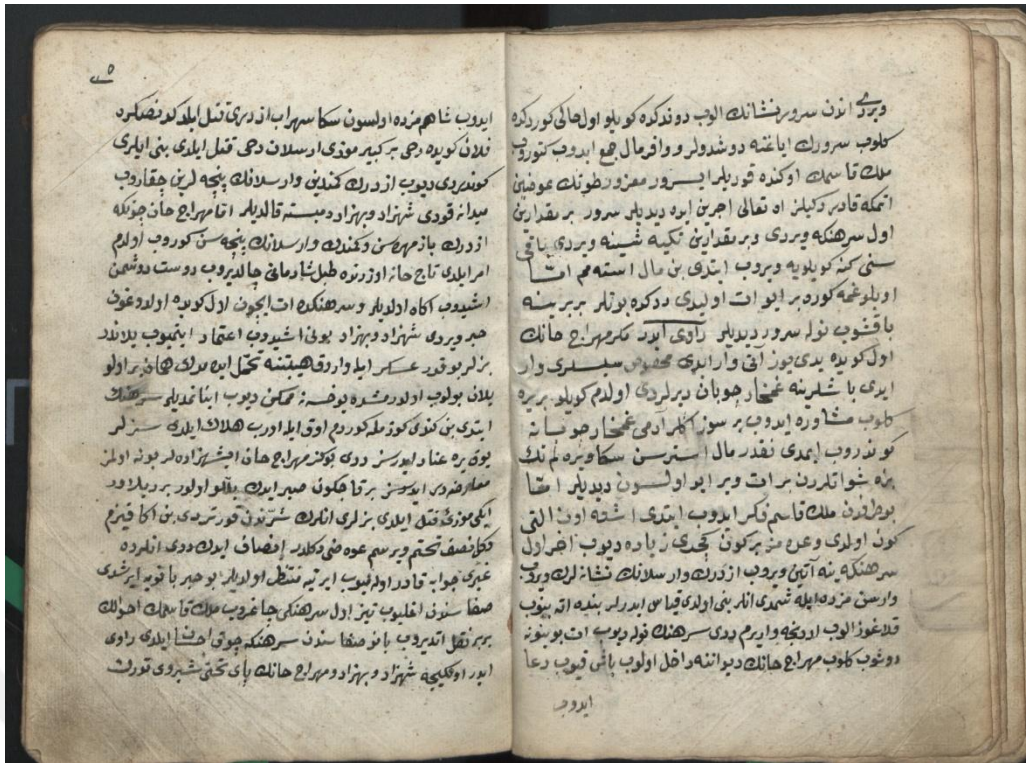 ويردى اندن سرور نشانك الوب دوندكده كويلو اول حالى كوردكده
كلوب سرورك اياغنه دوشدولر و وافر مال جمع ايدوب كتوروب
ملك قاسمك اوكنده قوديلر ايسرور معزور طوتك عوضين
اتمكه قادر دكيلز الله تعالى اجرين ايده ديديلر سرور بر مقدارين
اول سرهنكه ويردى و بر مقدارين تكيه شينه ويردى باقى
سنى كنه كويلويه ويروب ايتدى بن مال استه مم اما
اويلوغمه كوره بر ايو ات اوليدى ددكده بونلر بربرينه
باقشوب نوله سرور ديديلر راوى ايدر مكر مهراج خانك
اول كويده يدى يوز آتى وار ايدى مخصوص سلسرى وار
ايدى باشلرينه غمخار چوبان ديرلردى اولدم كويلو بريره
كلوب مشاوره ايدوب بر سوز اكلر آدمى غمخار چوبانه
كوندروب ايمدى نقدر مال استرسن سكا ويره لم تك
بزه شو اتلردن بر ات وير ايو اولسون ديديلر اما
بو طرفدن ملك قاسم فكر ايدوب ايتدى اشته اون التى
كون اولدى وعده مز بر كون كچدى زياده ديوب اخر اول
سرهنكه ينه آتين ويروب اژدرك و ارسلانك نشانه لرك ويروب
وارسن مزده ايله شمدى انلر بنى اولدى قياس ايدرلر بنده اته بينوب
قلاغوز الوب اردنجه واريرم ددى سرهنك نوله ديوب ات بوينونه
دوشوب كلوب مهراج خانك ديواننه داخل اولوب باش قيوب دعا
ايدوب
٥
ايدوب شاهم مزده اولسون سكا سهراب اژدرى قتل ايلدكدنصكره
فلان كويده دخى بر كبير موذى ارسلان دخى قتل ايلدى بنى ايلرى
كوندردى ديوب اژدرك كندين و ارسلانك پنچه لرين چقاروب
ميدانه قودى شهزاد و بهزاد دمبسته قالديلر اما مهراج خان چونكه
اژدرك باز مهره سن و كندك و ارسلانك پنچه سن كوروب اولدم
امر ايلدى تاج خانه اوزرنده طبل شادمانى چالديروب دوست دوشمن
اشيدوب اكاه اولديلر و سرهنكده ات ايچون اول كويده اولدوغون
خبر ويردى شهزاد و بهزاد بونى اشيدوب اعتماد ايتميوب يلاندر
بزلر بو قدر عسكر ايله واردق هيبتنه تحمل ايده مدك همان بر اولو
يلان بولوب اولدرمشده يوخسه نه ممكن ديوب اينانمديلر سرهنك
ايتدى بن كندى كوزمله كوردم اوق ايله اورب هلاك ايلدى سزلر
يوق يره عناد ايدرسز ددى بو كز مهراج خان ايشهزاده لر بو نه اولمز
معارضه در ايدرسز بر قاچ كون صبر ايدك يلانلو اولور بر ديلاور
ايكى موذى قتل ايلدى بزلرى انلرك شرندن قورتردى بن اكا قيزم
نصف تختم ويرسم عوضى دكلدر انصاف ايدك ددى انلرده
غيرى جوابه قادر اوله ميوب ايرتيه منتظر اولديلر بو خبر بانويه ايرشدى
صفا سندن اغليوب تيز اول سرهنكى چاغروب ملك قاسمك احوالك
بربر نقل اتديروب بانو صفا سندن سرهنكه چوق احسان ايلدى راوى
ايدر اول كيجه شهزاد و بهزاد و مهراج خانك پاى تختى